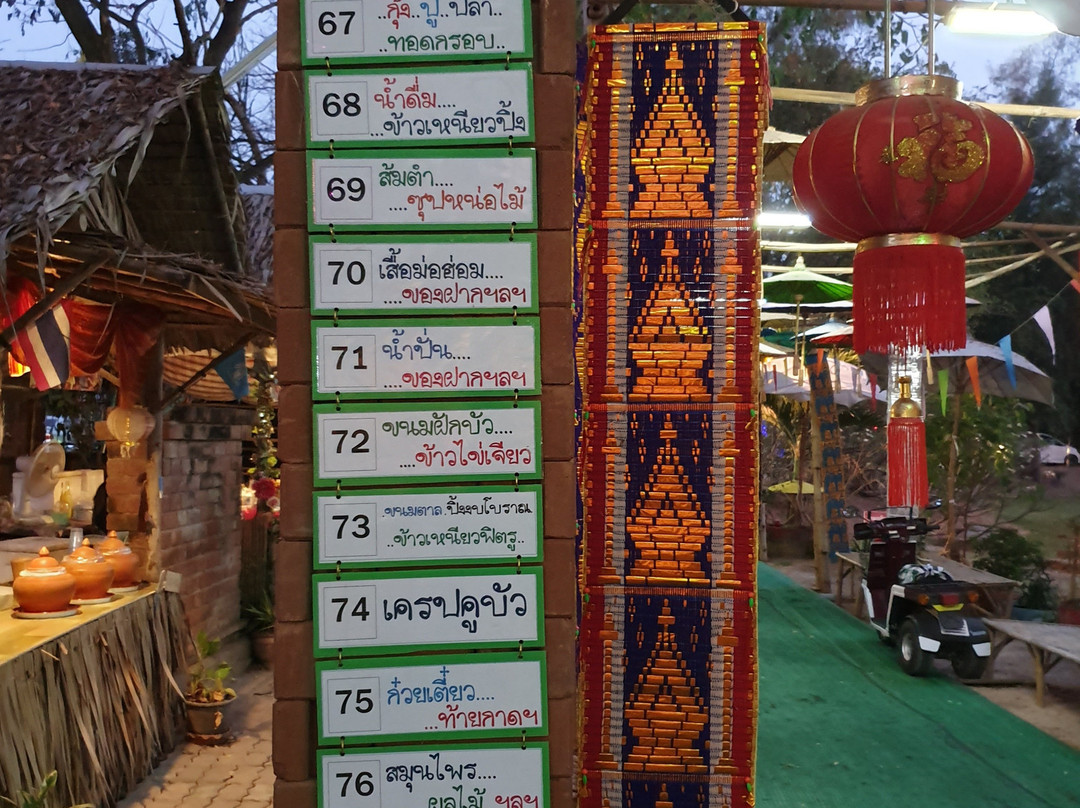 67
..กุ้ง..ปู..ปลา..
..ทอดกรอบ..
68
น้ำดื่ม....
...ข้าวเหนียวปิ้ง
69
ส้มตำ....
....ซุปหน่อไม้
70
เสื้อม่อฮ่อม....
....ของฝากฯลฯ
71
น้ำปั่น....
....ของฝากฯลฯ
72
ขนมฝักบัว....
....ข้าวไข่เจียว
73
.ขนมตาล.ปิ้งงบโบราณ
..ข้าวเหนียวฟิตรู..
74
เครปคูบัว
75
ก๋วยเตี๋ยว....
...ท้ายกาดฯ
76
สมุนไพร....
ผลไม้ ฯลฯ
福